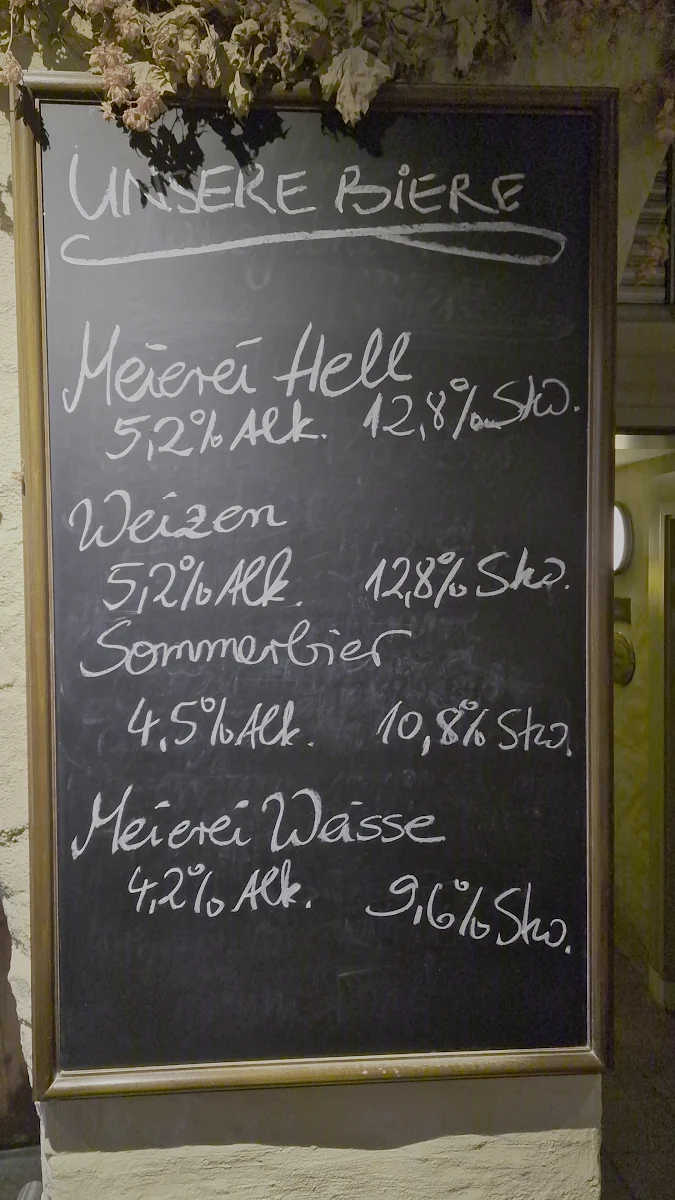 UNSERE BIERE
Meierei Hell
5,2% Alk. 12,8% Stw.
Weizen
5,2% Alk. 12,8% Stw.
Sommerbier
4,5% Alk. 10,8% Stw.
Meierei Weisse
4,2% Alk. 9,6% Stw.